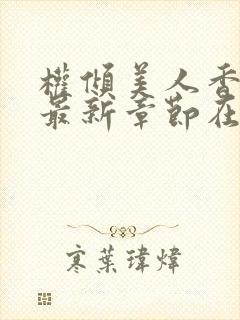 權傾美人香
最新章節在
寒葉瑋煒